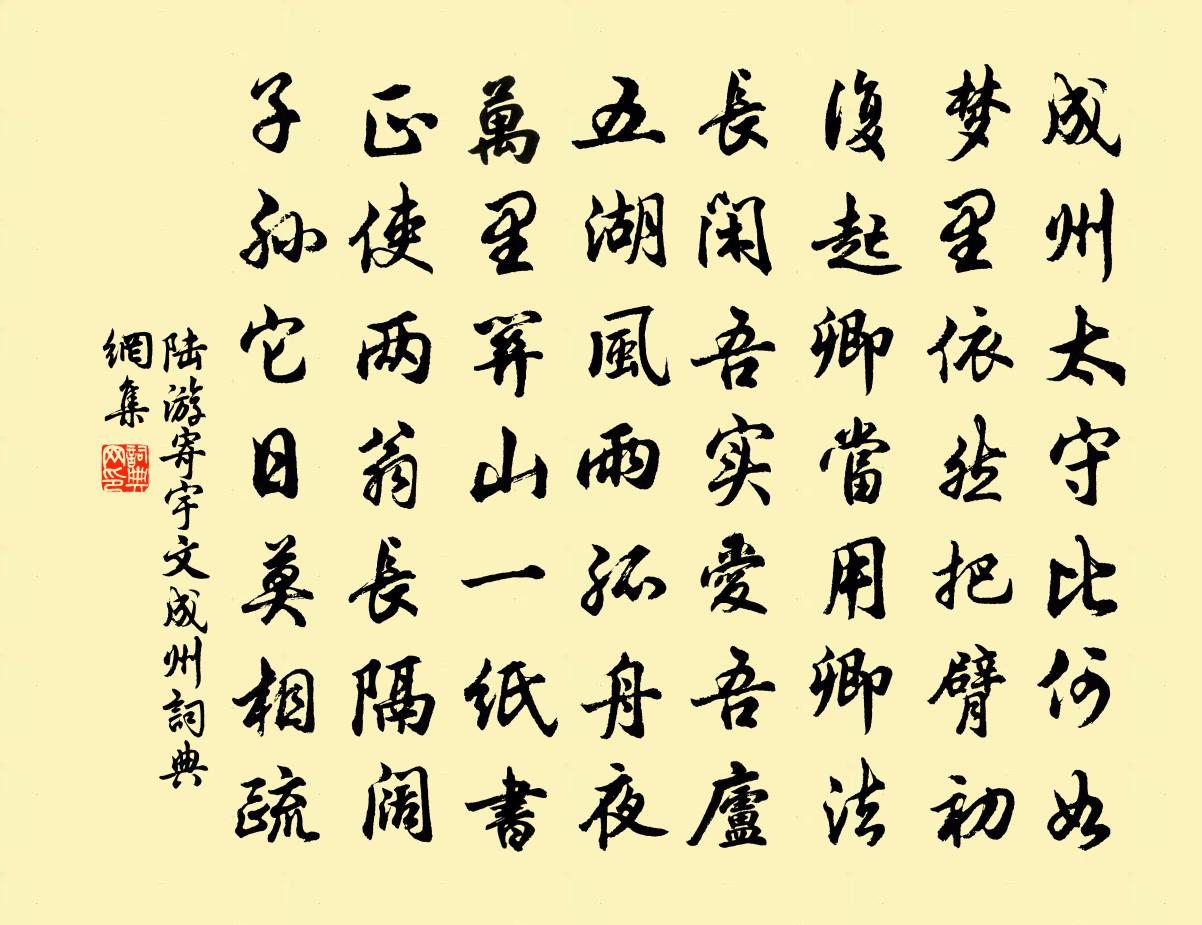 成州太守比何如
梦里依然把臂初
復起卿當用卿法
長閑吾实愛吾廬
五湖風雨孤舟夜
萬里關山一紙書
正使两翁長隔阔
子孫它日莫相疏
陆游寄宇文成州詞典
網集
詞典
网印